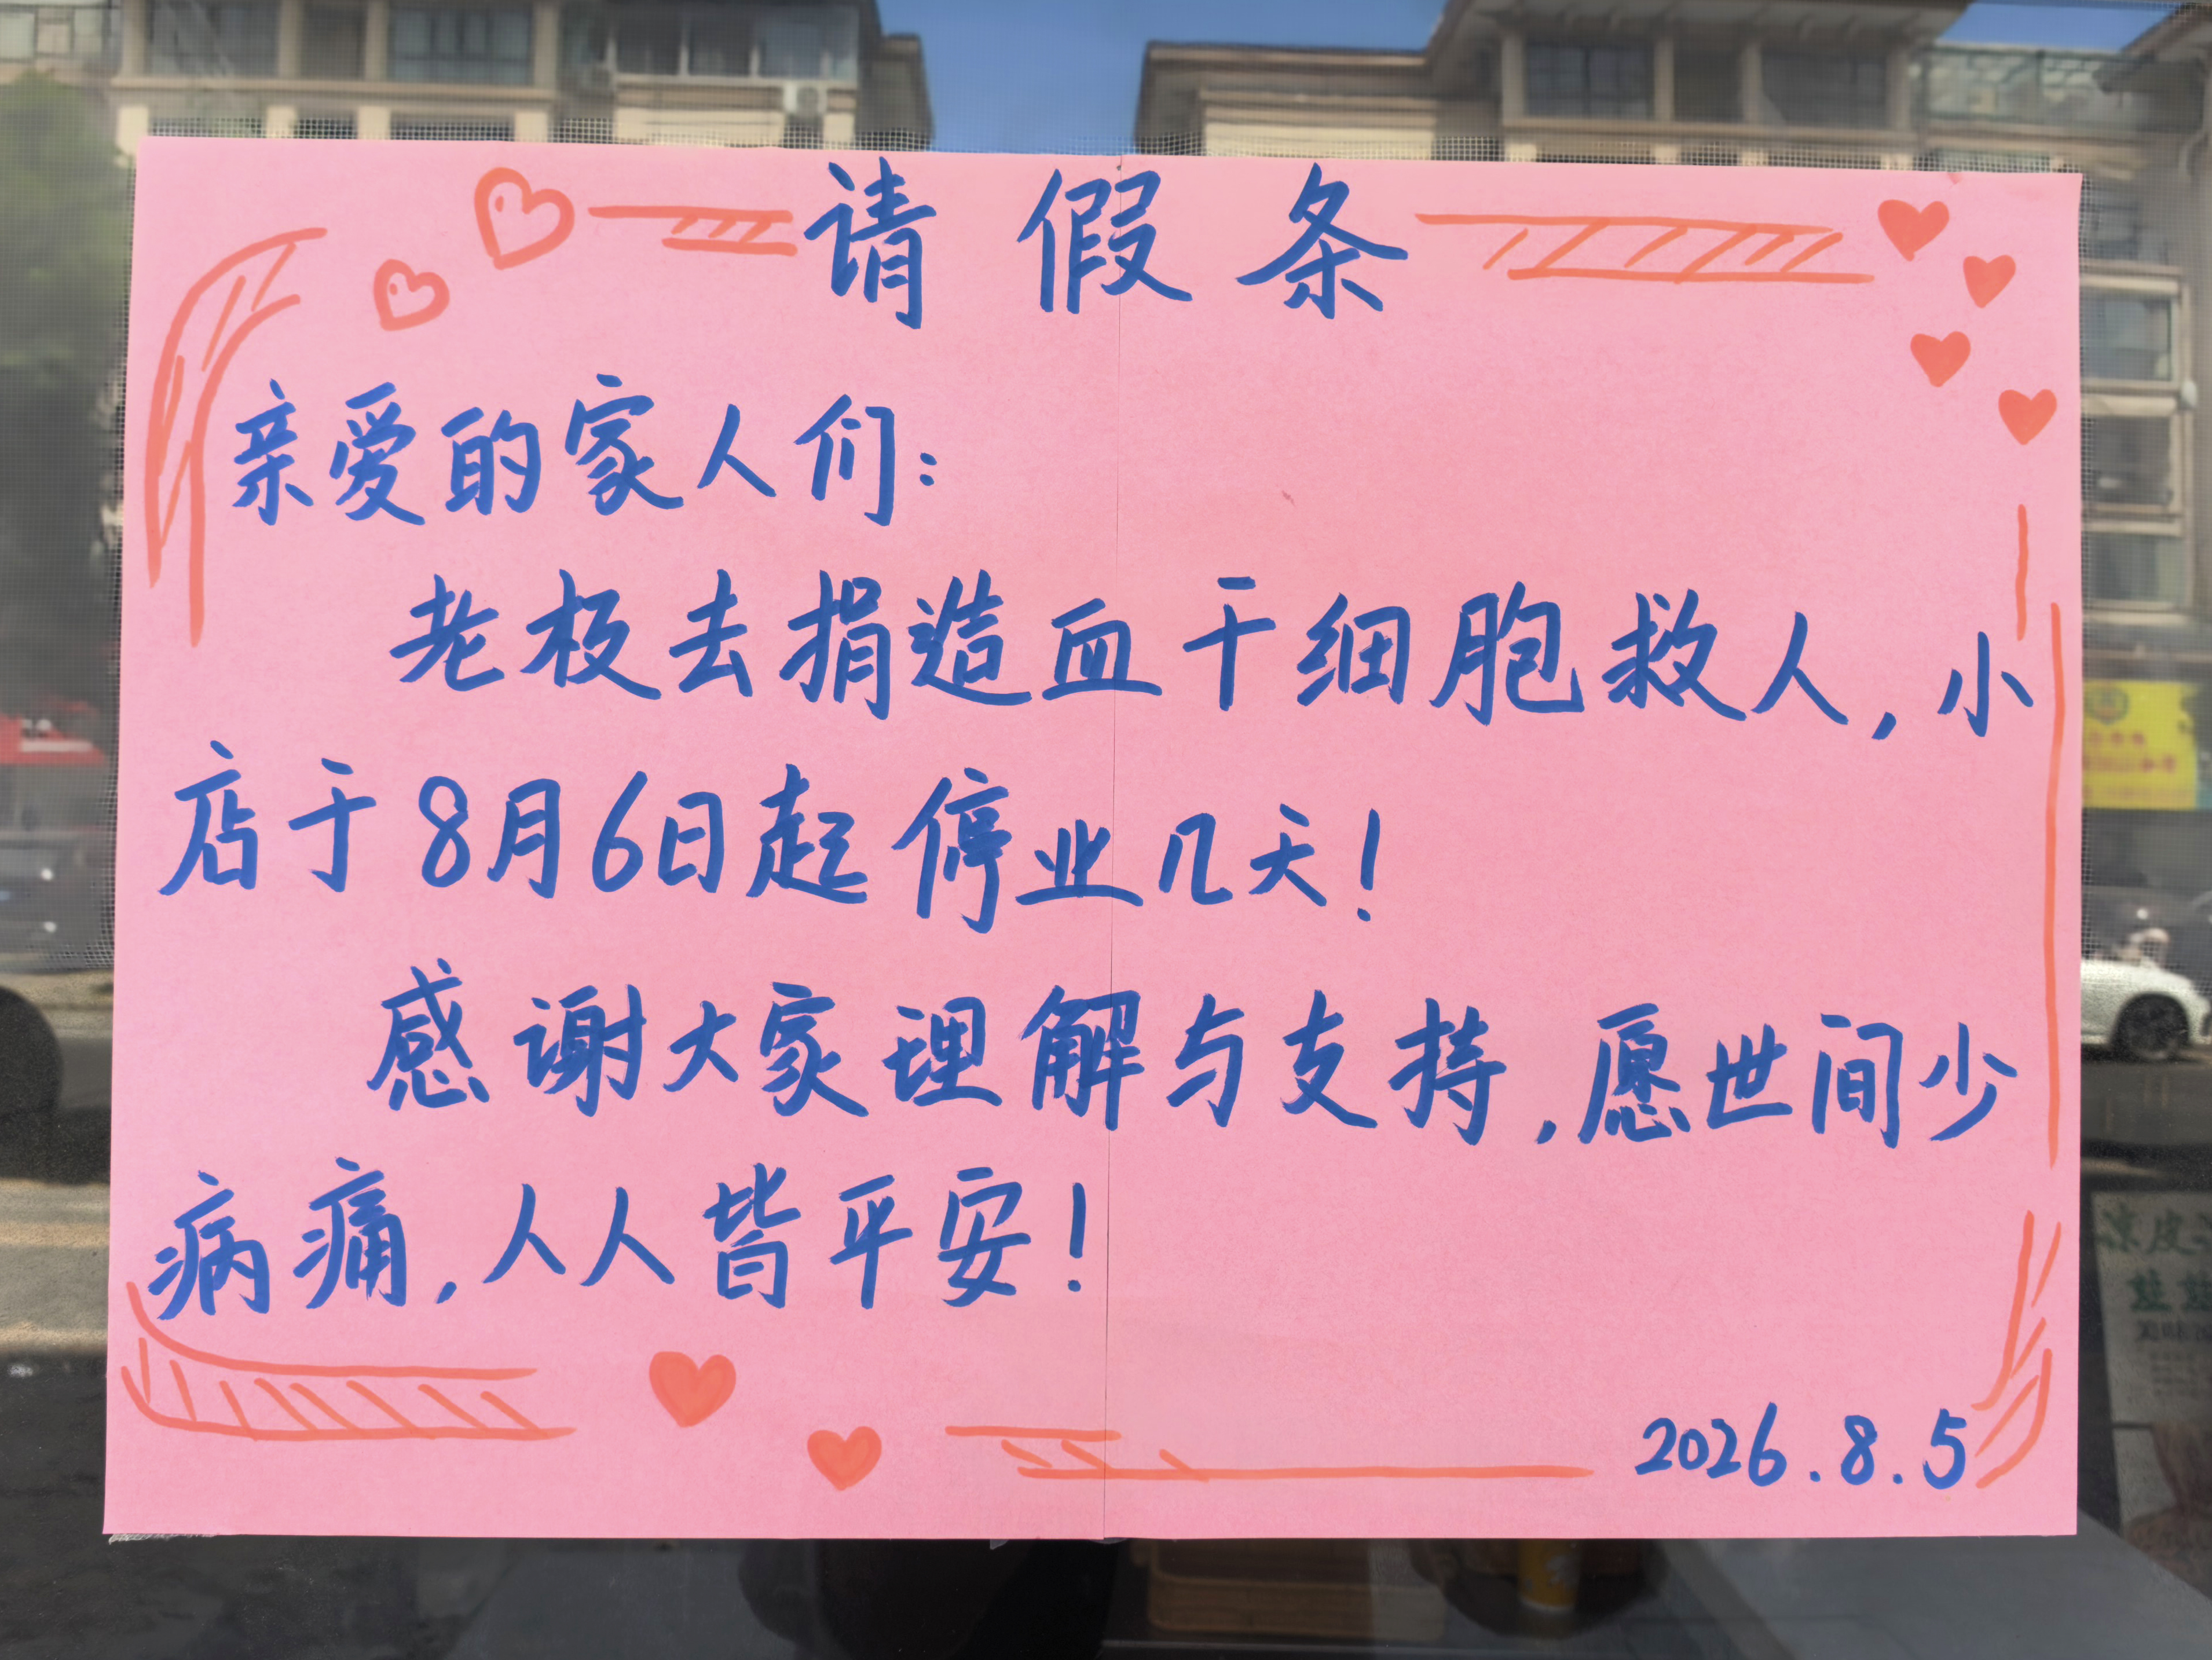 请假条
亲爱的家人们：
老板去捐造血干细胞救人，小
店于8月6日起停业几天！
感谢大家理解与支持，愿世间少
病痛，人人皆平安！
2026.8.5
凉皮